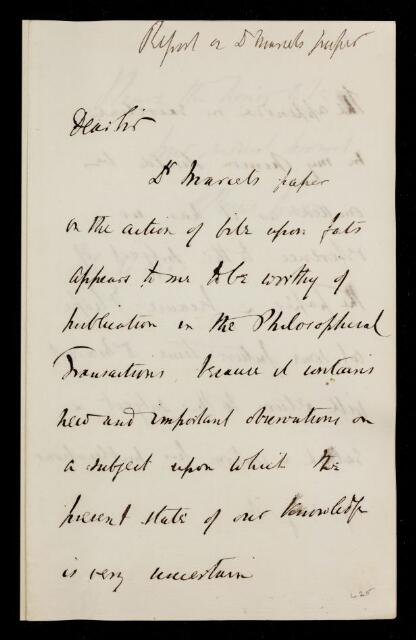 Report on Dr Marcets paper
Dear Sir
Dr Marcets paper
on the action of bile upon fats
appears to me to be worthy of
publication in the Philosophical
Transactions because it contains
new and important observations on
a subject upon which the
present state of our knowledge
is very uncertain